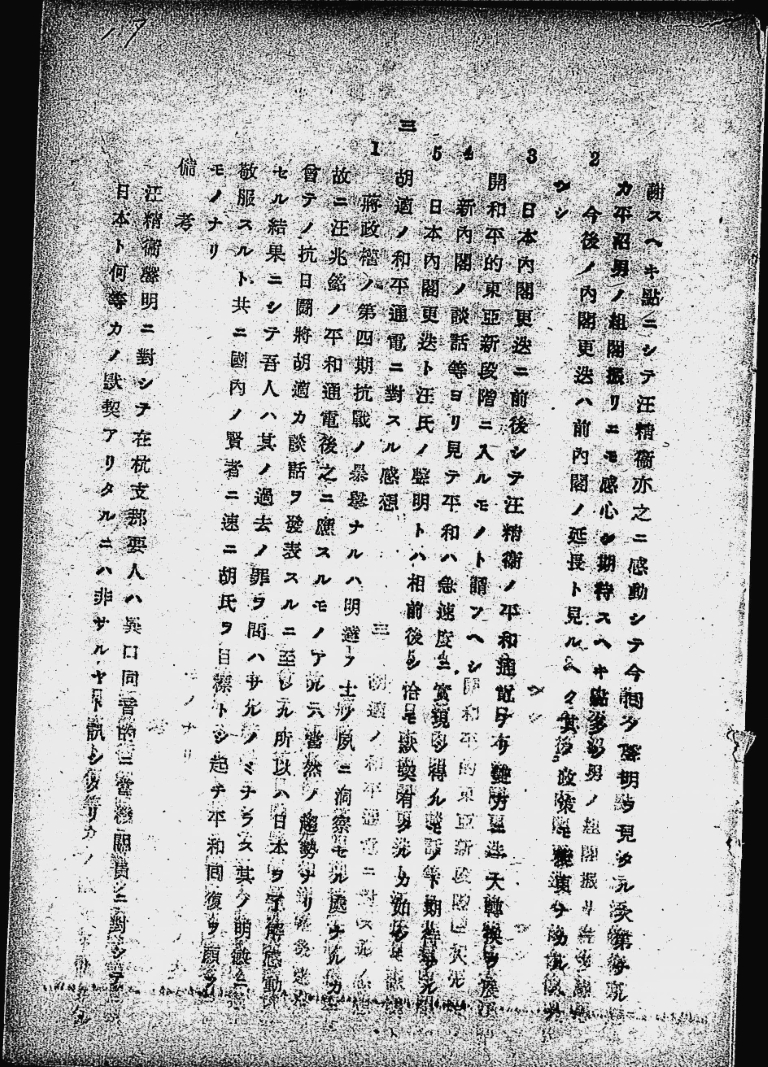 謝スヘキ點ニシテ汪精衞亦之ニ感動シテ今囘ノ聲明ヲ見タル次第ナル
カ平沼男ノ組閣振リニモ感心シ期待スヘキ點多シ
2 今後ノ內閣更迭ハ前內閣ノ延長ト見ルヘク其ノ政策モ
カシ
3 日本內閣更迭ニ前後シテ汪精衞ノ平和通電アリ雙方ニ一大轉換ヲ展
開和平的東亞新段階ニ入ルモノト謂フヘシ
4 新內閣ノ談話等ヨリ見テ平和ハ急速度ニ實現シ得ルモノト期待サル
5 日本內閣更迭ト汪氏ノ聲明トハ相前後シ恰モ默契有タルカ如シ
三 胡適ノ和平通電ニ對スル感想
1 蔣政權ノ第四期抗戰ノ暴擧ナルハ明達ノ士ノ夙ニ洞察セル處ナルカ
故ニ汪兆銘ノ平和通電後之ニ應スルモノアルハ當然ノ趨勢ナリ
曾テノ抗日鬪將胡適カ談話ヲ發表スルニ至レル所以ハ日本ヲ了解感動
セル結果ニシテ吾人ハ其ノ過去ノ罪ヲ問ハサルノミナラス其ノ明敏ニ
敬服スルト共ニ國內ノ賢者ニ速ニ胡氏ヲ目標トシ起チ平和囘復ヲ願フ
モノナリ
備考
汪精衞聲明ニ對シテ在杭支那要人ハ異口同音的ニ當機關員ニ對シテ
日本ト何等カノ默契アリタルニハ非サルヤト訊シタリ